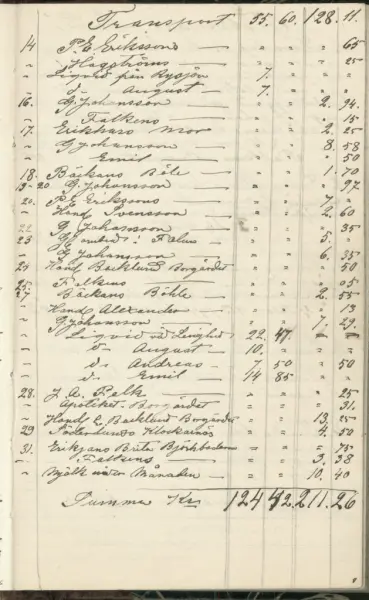 Transport 55. 60. 128. 11.
14 P. E. Eriksson — " " " 65
" Hagströms — " " " 25
" Liqvid från Rysjön 7. " " "
" d:o August — 7. " " "
16. G Johansson — " " 2. 94.
" Falkens — " " " 15
17. Erikhans Mor " " 2. 25
" G Johansson — " " 8. 58
" Emil — " " " 50
18. Bäckans Böle — " " 1. 70
19-20 G. Johansson — " " " 97
20. P. E. Erikssons — " " 7. "
" Hand Svensson — " " 2. 60
22 G. Johansson — " " " 35
23 i Falun — " " 5. "
" G Johansson — " " 6. 35
25 Hand Bäcklund Borgärdet " " " 50
25. Falkens — " " " 05
27 Bäckans Böhle — " " 2. 55
" Hand Alexander — " " " 13
" G Johansson — " " 7. 29.
" Liqvid 22. 47. " "
" d:o August — 10. " " "
" d:o Andreas — 7 50 " 50
" d:o Emil — 14 85 " "
28. J. A. Falk — " " " 25
" Apotiket Borgärdet " " " 31.
" Handl E Backlund Borgärdet " " 13. 25
29 Söderlunds Klockarnäs " " 4. 50
31. Erikjans Brita Björkboda " " " 75
" Falkens — " " 3. 38
" Mjölk Månaden — " " 10. 40
Summa Kr 124 42. 211. 26